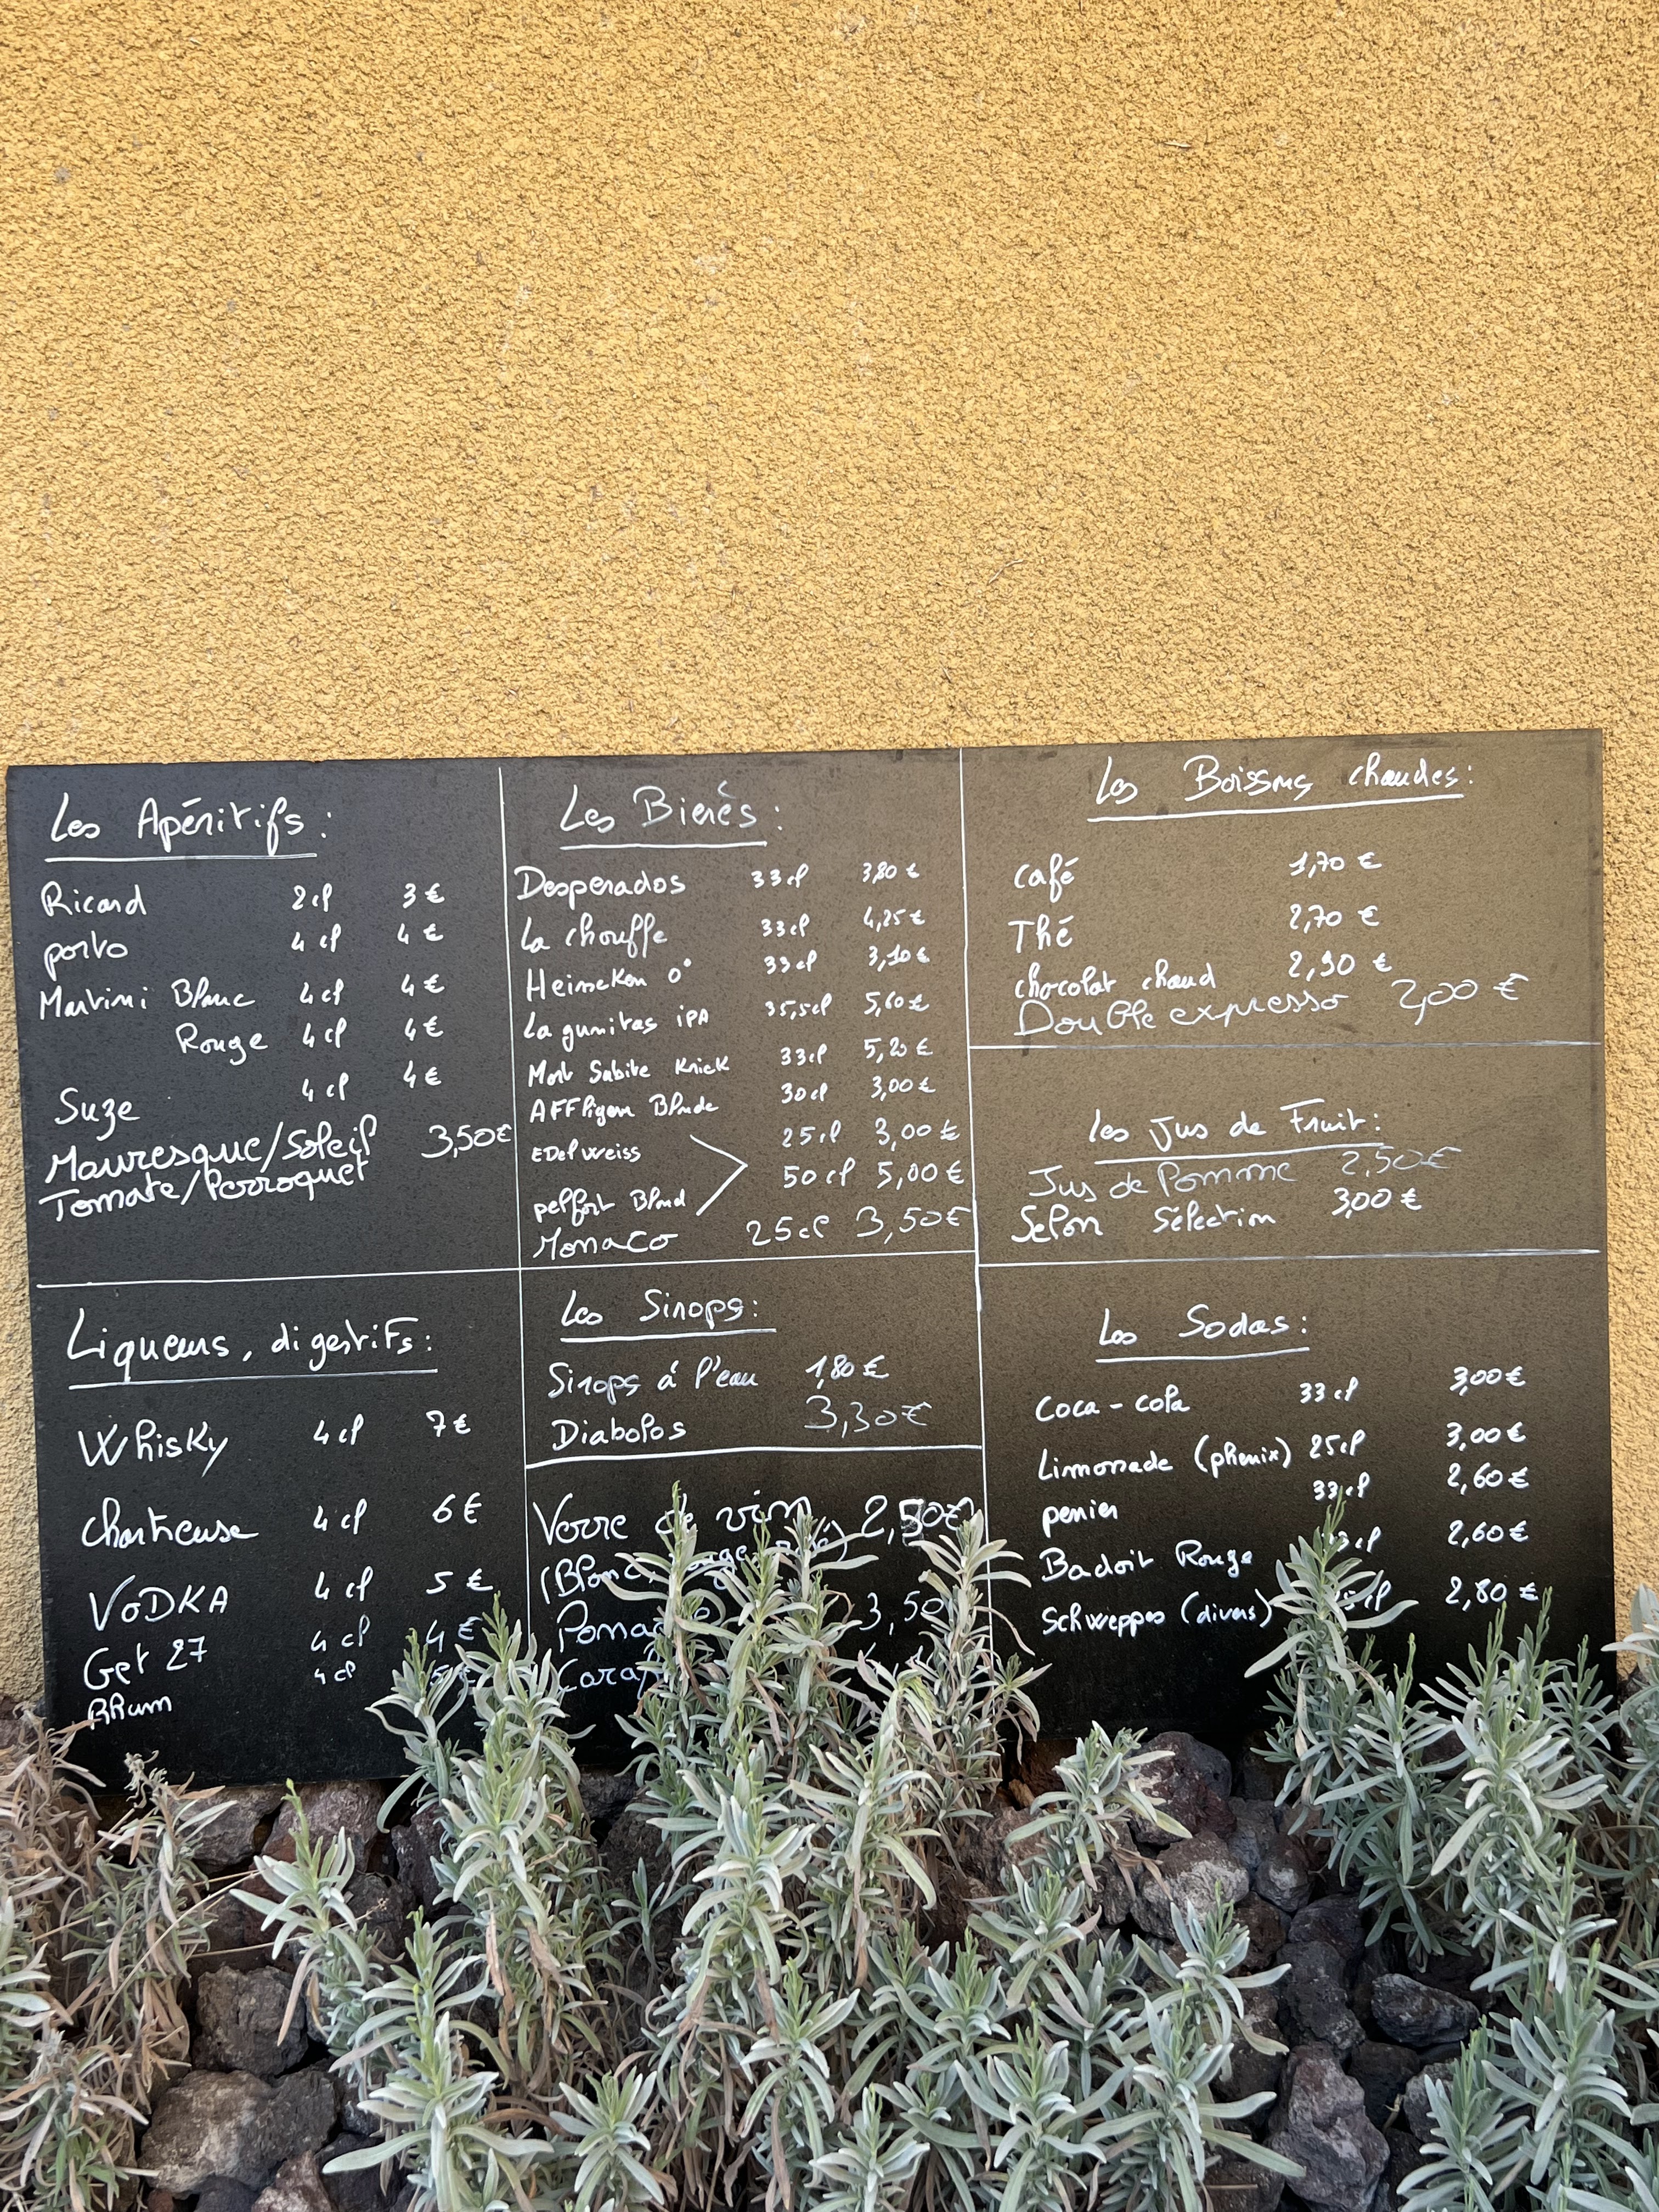 Les Apéritifs :
Ricard 2cl 3 €
porto 4 cl 4 €
Martini Blanc 4 cl 4 €
Rouge 4 cl 4 €
Suze 4 cl 4 €
Mauresque/Soleil 3,50€
Tomate/Perroquet
Liqueurs, digestifs :
Whisky 4 cl 7 €
chartreuse 4 cl 6 €
VODKA 4 cl 5 €
Get 27 4 cl 4 €
Rhum 4 cl
Les Bierès :
Desperados 33cl 3,80 €
La chouffe 33cl 4,25 €
Heineken 0° 33cl 3,10 €
La gunitas iPA 35,5cl 5,60 €
Mort Sabite Kriek 33cl 5,20 €
AFFligem Blonde 30cl 3,00 €
EDelweiss 25cl 3,00 €
50 cl 5,00 €
pelfort Blond
Monaco 25cl 3,50€
Les Sirops :
Sirops á l'eau 1,80 €
Diabolos 3,30€
Verre de vin 2,50€
(Blanc
3,50
Les Boissons chaudes :
Café 1,70 €
Thé 2,70 €
chocolat chaud 2,90 €
Double expresso 2,00 €
Les Jus de Fruit :
Jus de Pomme 2,50€
Selon Sélection 3,00 €
Les Sodas :
Coca-cola 33 cl 3,00 €
Limonade (phenix) 25cl 3,00 €
perrier 33cl 2,60 €
Badoit Rouge 2,60 €
Schweppes (divers) 2,80 €